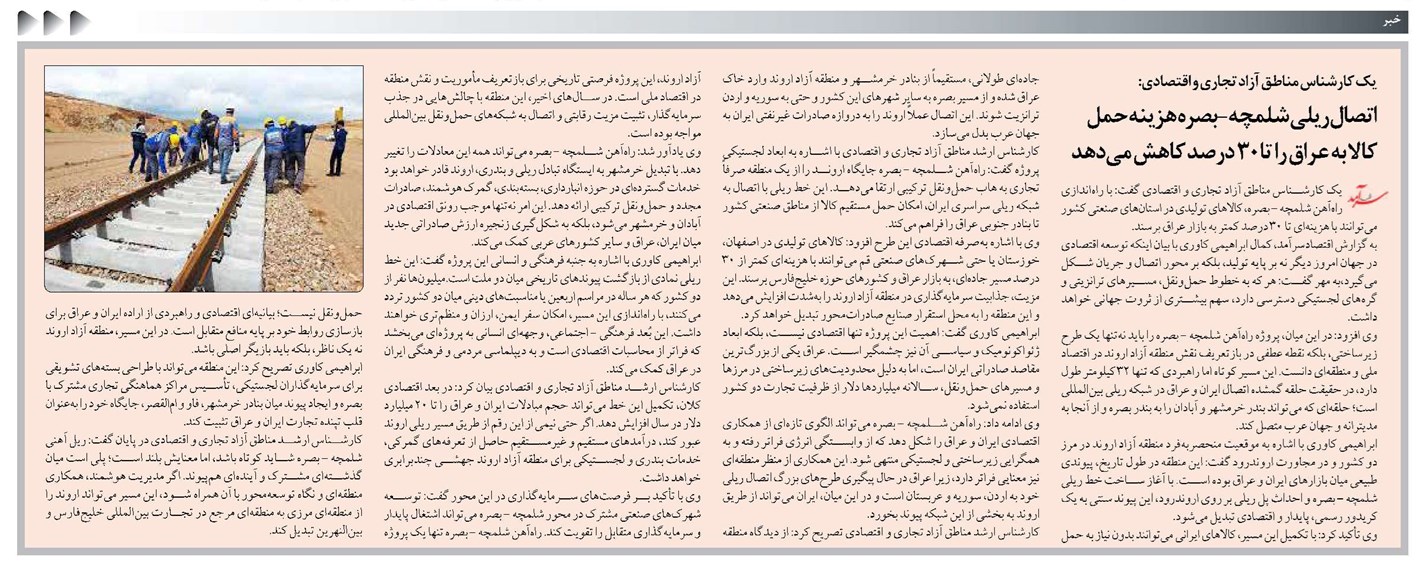 خبر
یک کارشناس مناطق آزاد تجاری و اقتصادی:
اتصال ریلی شلمچه – بصره هزینه حمل
کالا به عراق را تا ۳۰ درصد کاهش می‌دهد
سرآمد
یک کارشـناس مناطق آزاد تجاری و اقتصادی گفت: با راه‌اندازی
راه‌آهن شلمچه – بصره، کالاهای تولیدی در استان‌های صنعتی کشور
می‌توانند با هزینه‌ای تا ۳۰درصد کمتر به بازار عراق برسند.
به گزارش اقتصادسرآمد، کمال ابراهیمی کاوری با بیان اینکه توسعه اقتصادی
در جهان امروز دیگر نه بر پایه تولید، بلکه بر محور اتصال و جریان شـکل
می‌گیرد،به مهر گفـت: هر که به خطوط حمل‌ونقل، مسـیرهای ترانزیتی و
گره‌های لجستیکی دسترسی دارد، سهم بیشـتری از ثروت جهانی خواهد
داشت.
وی افزود: در این میان، پروژه راه‌آهن شلمچه – بصره را باید نه‌تنها یک طرح
زیرساختی، بلکه نقطه عطفی در بازتعریف نقش منطقه آزاد اروند در اقتصاد
ملی و منطقه‌ای دانست. این مسیر کوتاه اما راهبردی که تنها ۳۲ کیلومتر طول
دارد، در حقیقت حلقه گمشده اتصال ایران و عراق در شبکه ریلی بین‌المللی
است؛ حلقه‌ای که می‌تواند بندر خرمشهر و آبادان را به بندر بصره و از آنجا به
مدیترانه و جهان عرب متصل کند.
ابراهیمی کاوری با اشاره به موقعیت منحصربه‌فرد منطقه آزاد اروند در مرز
دو کشور و در مجاورت اروندرود گفت: این منطقه در طول تاریخ، پیوندی
طبیعی میان بازارهای ایران و عراق بوده اسـت. با آغاز ساخت خط ریلی
شلمچه – بصره و احداث پل ریلی بر روی اروندرود، این پیوند سنتی به یک
کریدور رسمی، پایدار و اقتصادی تبدیل می‌شود.
وی تأکید کرد: با تکمیل این مسیر، کالاهای ایرانی می‌توانند بدون نیاز به حمل
جاده‌ای طولانی، مستقیماً از بنادر خرمشـهر و منطقه آزاد اروند وارد خاک
عراق شده و از مسیر بصره به سایر شهرهای این کشور و حتی به سوریه و اردن
ترانزیت شوند. این اتصال عملاً اروند را به دروازه صادرات غیرنفتی ایران به
جهان عرب بدل می‌سازد.
کارشناس ارشد مناطق آزاد تجاری و اقتصادی با اشاره به ابعاد لجستیکی
پروژه گفت: راه‌آهن شـلمچه – بصره جایگاه ارونـد را از یک منطقه صرفاً
تجاری به هاب حمل‌ونقل ترکیبی ارتقا می‌دهـد. این خط ریلی با اتصال به
شبکه ریلی سراسری ایران، امکان حمل مستقیم کالا از مناطق صنعتی کشور
تا بنادر جنوبی عراق را فراهم می‌کند.
وی با اشاره به‌صرفه اقتصادی این طرح افزود: کالاهای تولیدی در اصفهان،
خوزستان یا حتی شـهرک‌های صنعتی قم می‌توانند با هزینه‌ای کمتر از ۳۰
درصد مسیر جاده‌ای، به بازار عراق و کشورهای حوزه خلیج‌فارس برسند. این
مزیت، جذابیت سرمایه‌گذاری در منطقه آزاد اروند را به‌شدت افزایش می‌دهد
و این منطقه را به محل استقرار صنایع صادرات‌محور تبدیل خواهد کرد.
ابراهیمی کاوری گفت: اهمیت این پروژه تنها اقتصادی نیسـت، بلکه ابعاد
ژئواکونومیک و سیاسـی آن نیز چشمگیر است. عراق یکی از بزرگ‌ترین
مقاصد صادراتی ایران است، اما به دلیل محدودیت‌های زیرساختی در مرزها
و مسیرهای حمل‌ونقل، سـالانه میلیاردها دلار از ظرفیت تجارت دو کشور
استفاده نمی‌شود.
وی ادامه داد: راه‌آهن شـلمچه – بصره می‌تواند الگوی تازه‌ای از همکاری
اقتصادی ایران و عراق را شکل دهد که از وابسـتگی انرژی فراتر رفته و به
همگرایی زیرساختی و لجستیکی منتهی شود. این همکاری از منظر منطقه‌ای
نیز معنایی فراتر دارد، زیرا عراق در حال پیگیری طرح‌های بزرگ اتصال ریلی
خود به اردن، سوریه و عربستان است و در این میان، ایران می‌تواند از طریق
اروند به بخشی از این شبکه پیوند بخورد.
کارشناس ارشد مناطق آزاد تجاری و اقتصادی تصریح کرد: از دیدگاه منطقه
آزاد اروند، این پروژه فرصتی تاریخی برای بازتعریف مأموریت و نقش منطقه
در اقتصاد ملی است. در سـال‌های اخیر، این منطقه با چالش‌هایی در جذب
سرمایه‌گذار، تثبیت مزیت رقابتی و اتصال به شبکه‌های حمل‌ونقل بین‌المللی
مواجه بوده است.
وی یادآور شد: راه‌آهن شـلمچه – بصره می‌تواند همه این معادلات را تغییر
دهد. با تبدیل خرمشهر به ایستگاه تبادل ریلی و بندری، اروند قادر خواهد بود
خدمات گسترده‌ای در حوزه انبارداری، بسته‌بندی، گمرک هوشمند، صادرات
مجدد و حمل‌ونقل ترکیبی ارائه دهد. این امر نه‌تنها موجب رونق اقتصادی در
آبادان و خرمشهر می‌شود، بلکه به شکل‌گیری زنجیره ارزش صادراتی جدید
میان ایران، عراق و سایر کشورهای عربی کمک می‌کند.
ابراهیمی کاوری با اشاره به جنبه فرهنگی و انسانی این پروژه گفت: این خط
ریلی نمادی از بازگشت پیوندهای تاریخی میان دو ملت است. میلیون‌ها نفر از
دو کشور که هر ساله در مراسم اربعین یا مناسبت‌های دینی میان دو کشور تردد
می‌کنند، با راه‌اندازی این مسیر، امکان سفر ایمن، ارزان و منظم‌تری خواهند
داشت. این بُعد فرهنگی – اجتماعی، وجهه‌ای انسانی به پروژه‌ای می‌بخشد
که فراتر از محاسبات اقتصادی است و به دیپلماسی مردمی و فرهنگی ایران
در عراق کمک می‌کند.
کارشناس ارشـد مناطق آزاد تجاری و اقتصادی بیان کرد: در بعد اقتصادی
کلان، تکمیل این خط می‌تواند حجم مبادلات ایران و عراق را تا ۲۰ میلیارد
دلار در سال افزایش دهد. اگر حتی نیمی از این رقم از طریق مسیر ریلی اروند
عبور کند، درآمدهای مستقیم و غیرمسـتقیم حاصل از تعرفه‌های گمرکی،
خدمات بندری و لجسـتیکی برای منطقه آزاد اروند جهشـی چندبرابری
خواهد داشت.
وی با تأکید بـر فرصت‌های سـرمایه‌گذاری در این محور گفت: توسـعه
شهرک‌های صنعتی مشترک در محور شلمچه – بصره می‌تواند اشتغال پایدار
و سرمایه‌گذاری متقابل را تقویت کند. راه‌آهن شلمچه – بصره تنها یک پروژه
حمل‌ونقل نیسـت؛ بیانیه‌ای اقتصادی و راهبردی از اراده ایران و عراق برای
بازسازی روابط خود بر پایه منافع متقابل است. در این مسیر، منطقه آزاد اروند
نه یک ناظر، بلکه باید بازیگر اصلی باشد.
ابراهیمی کاوری تصریح کرد: این منطقه می‌تواند با طراحی بسته‌های تشویقی
برای سرمایه‌گذاران لجستیکی، تأسـیس مراکز هماهنگی تجاری مشترک با
بصره و ایجاد پیوند میان بنادر خرمشهر، فاو و ام‌القصر، جایگاه خود را به‌عنوان
قلب تپنده تجارت ایران و عراق تثبیت کند.
کارشـناس ارشـد مناطق آزاد تجاری و اقتصادی در پایان گفت: ریل آهنی
شلمچه – بصره شـاید کوتاه باشد، اما معنایش بلند اسـت؛ پلی است میان
گذشـته‌ای مشـترک و آینده‌ای هم‌پیوند. اگر مدیریت هوشمند، همکاری
منطقه‌ای و نگاه توسعه‌محور با آن همراه شـود، این مسیر می‌تواند اروند را
از منطقه‌ای مرزی به منطقه‌ای مرجع در تجـارت بین‌المللی خلیج‌فارس و
بین‌النهرین تبدیل کند.